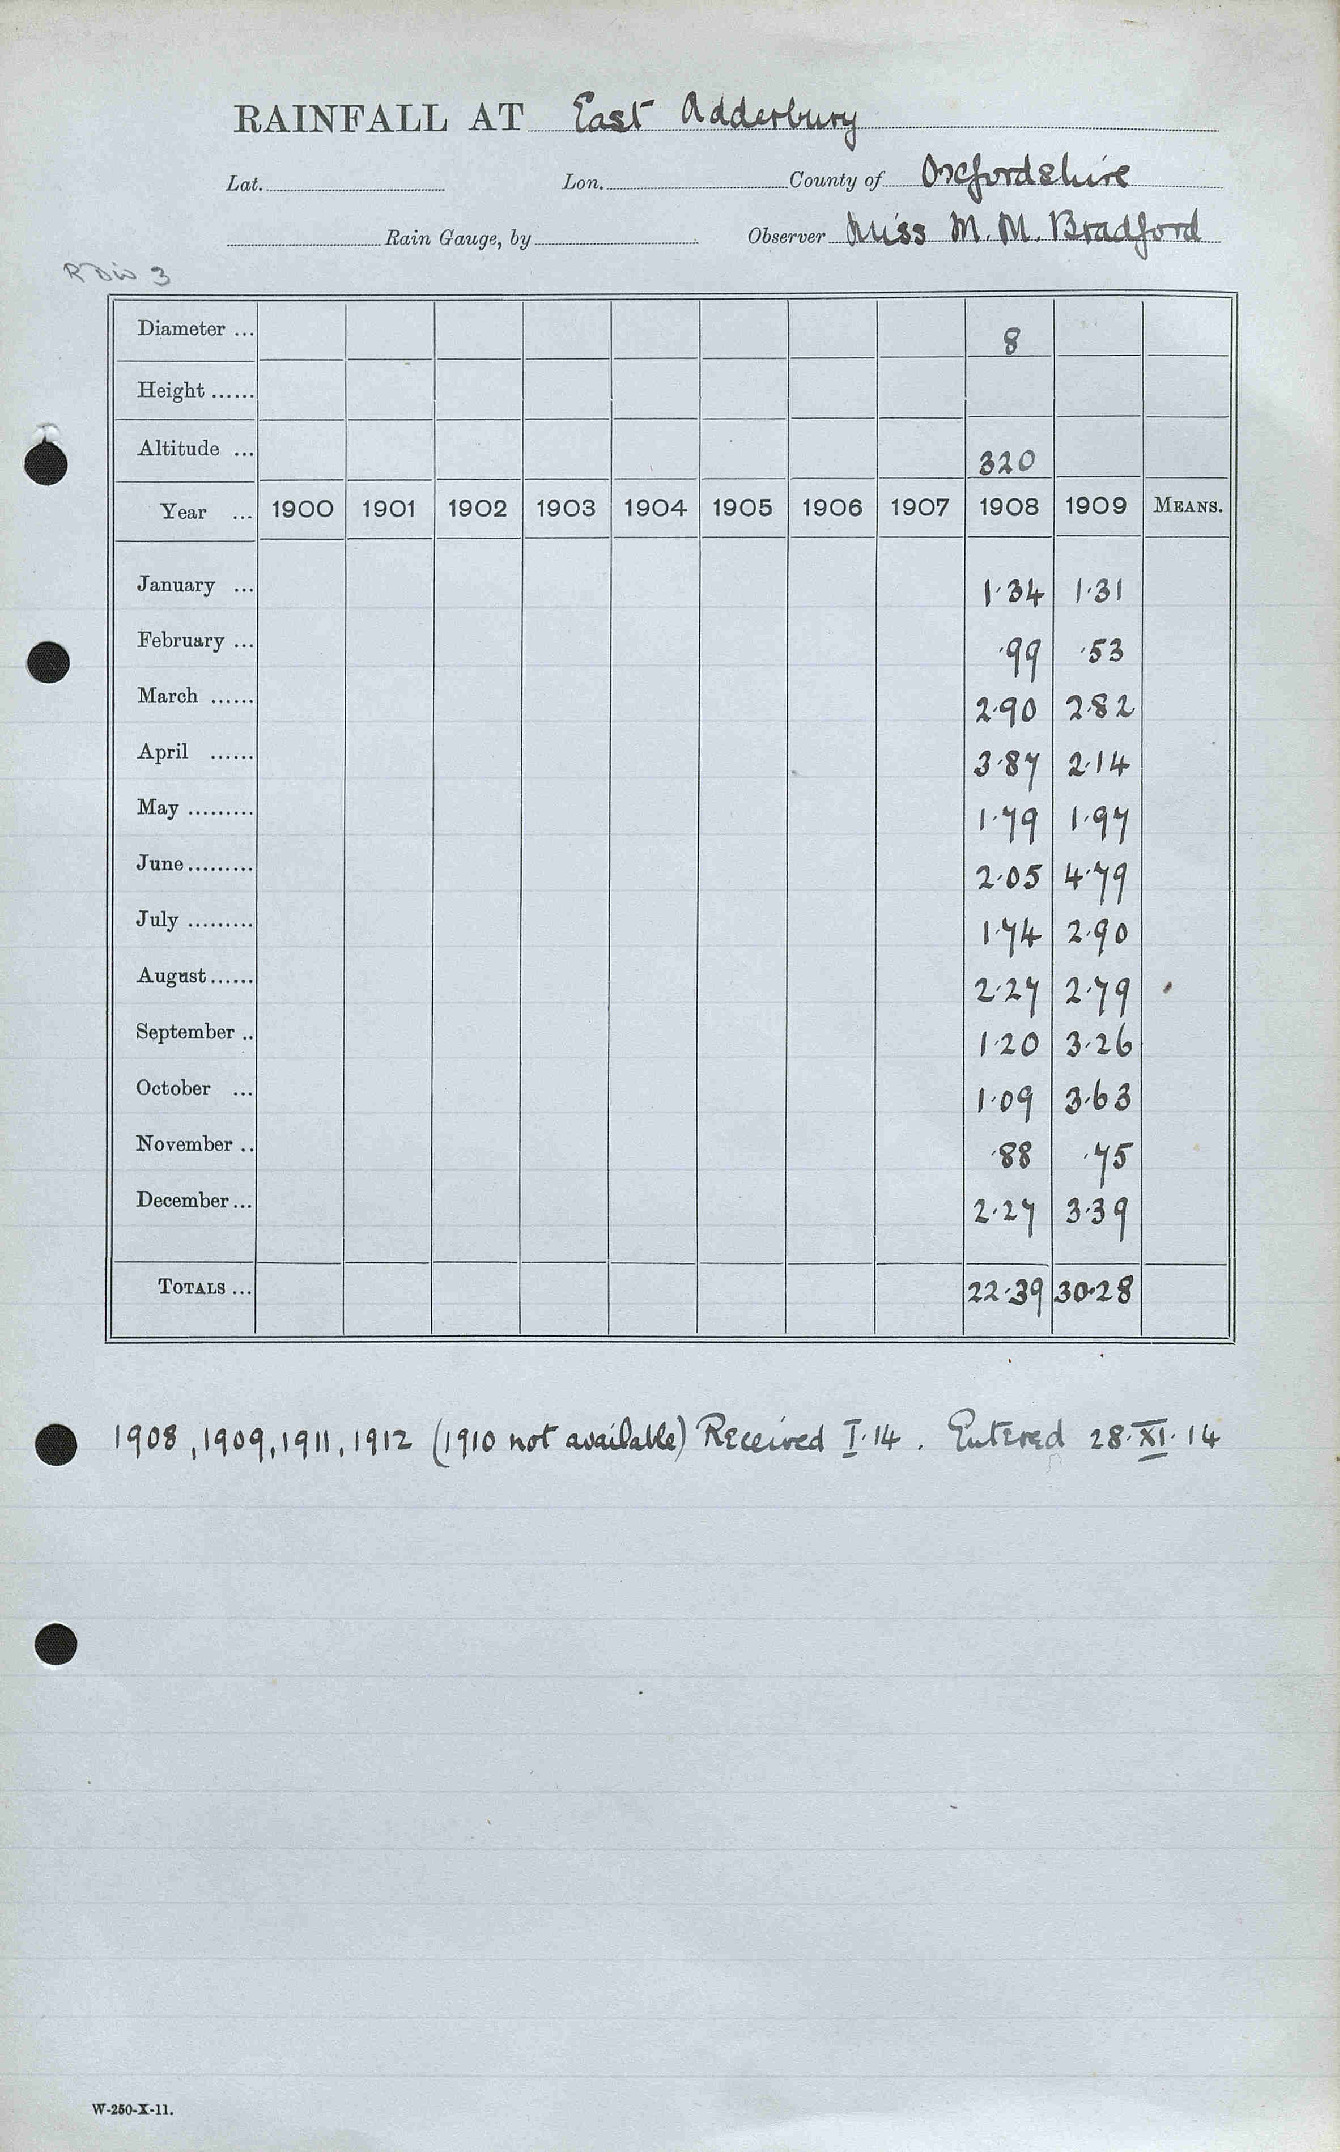 RAINFALL AT East Adderbury
Lat. Lon. County of Oxfordshire
Rain Gauge, by Observer Miss M. M. Bradford
R Div 3
Diameter ... 8
Height ......
Altitude ... 320
Year ... 1900 1901 1902 1903 1904 1905 1906 1907 1908 1909 MEANS.
January ... 1·34 1·31
February ... ·99 ·53
March ...... 2·90 2·82
April ...... 3·87 2·14
May ......... 1·79 1·97
June ......... 2·05 4·79
July ......... 1·74 2·90
August ...... 2·27 2·79
September .. 1·20 3·26
October ... 1·09 3·63
November .. ·88 ·75
December ... 2·27 3·39
TOTALS ... 22·39 30·28
1908, 1909, 1911, 1912 (1910 not available) Received I·14. Entered 28·XI·14
W-250-X-11.